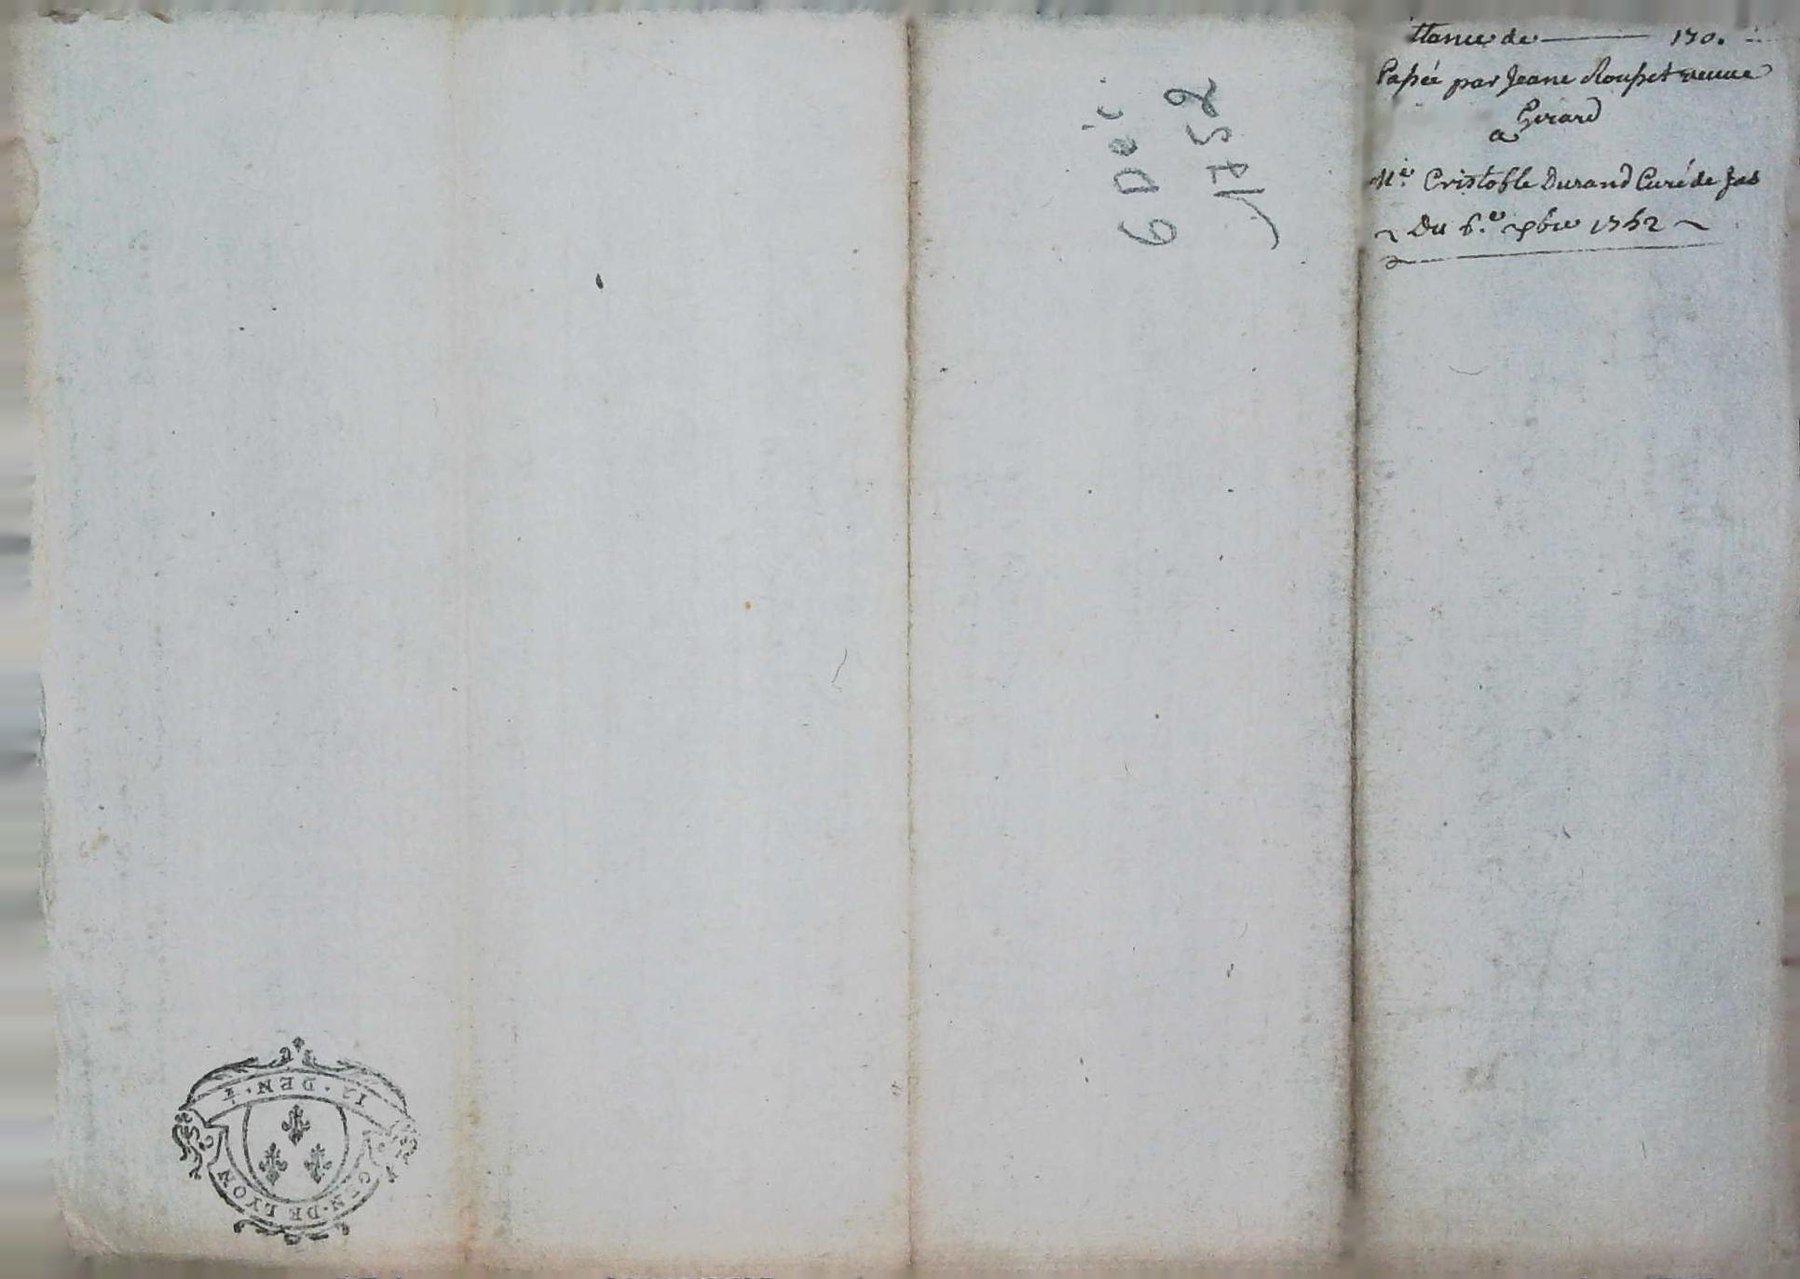 ttance de — 170.
Passée par Jeane Rousset veuve
Girard
a
Me. Cristofle Durand Curé de Jas
~ Du 6.e xbre 1752 ~
6 Déc
1752
12. DEN. 4
GEN. DE LYON